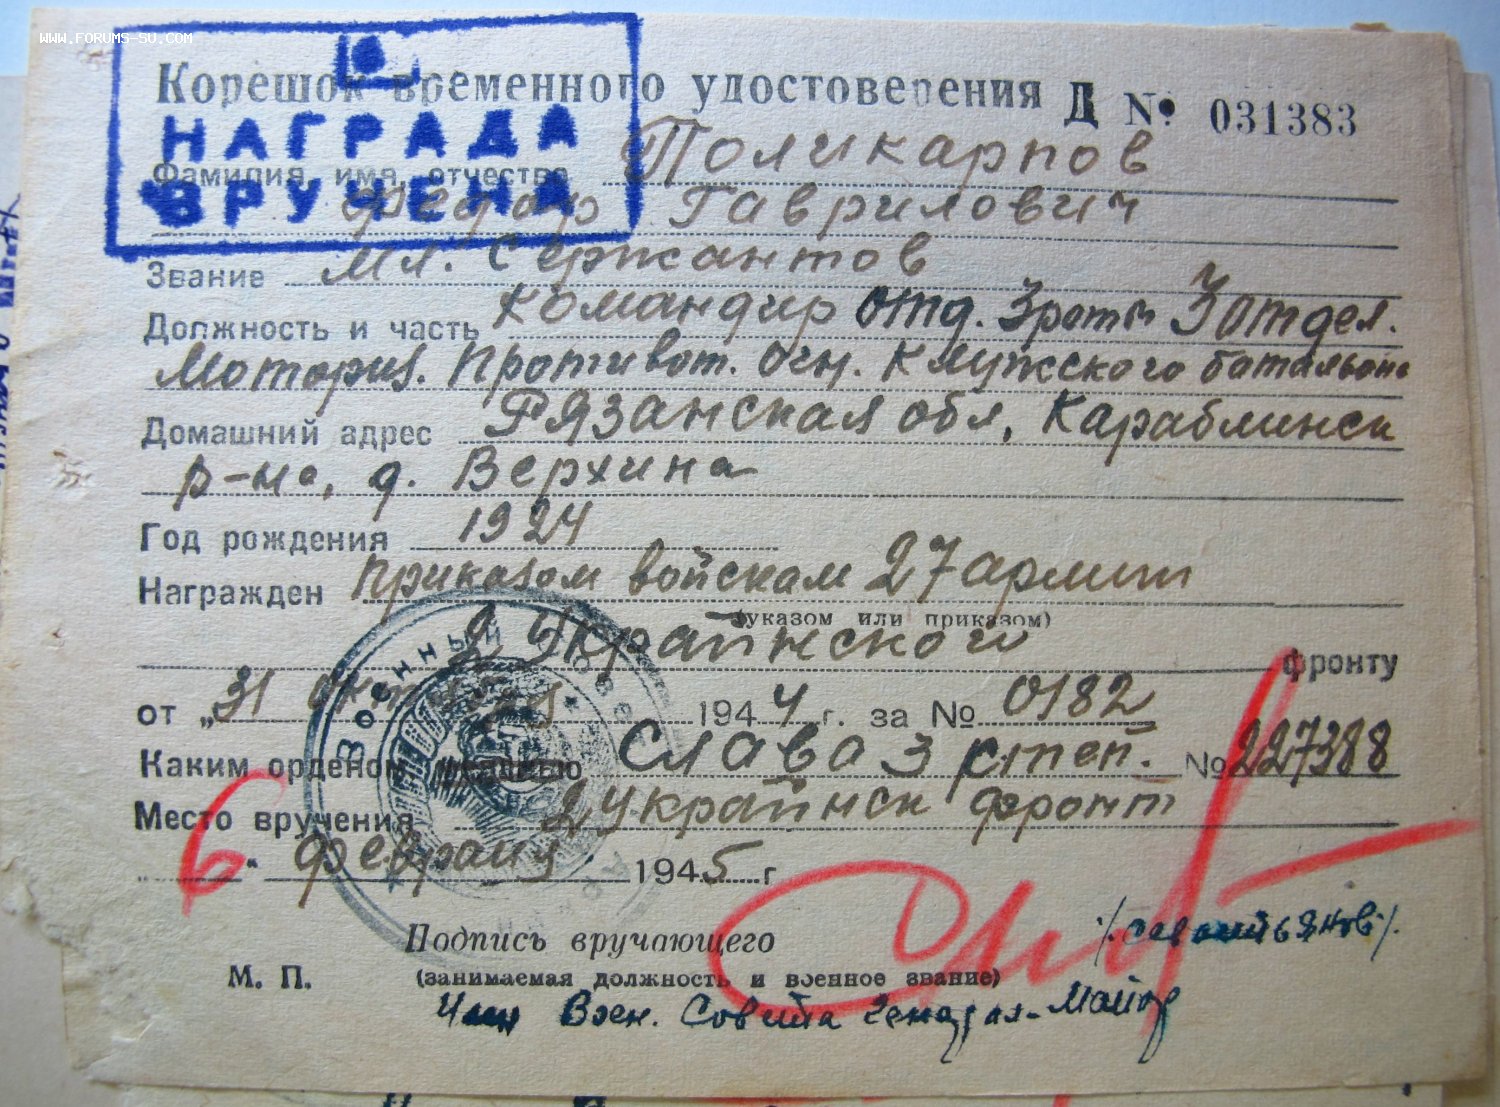 WWW.FORUMS-SU.COM
Корешок временного удостоверения Д № 031383
НАГРАДА
ВРУЧЕНА
Фамилия, имя, отчество Поликарпов
Федор Гаврилович
Звание мл. Сержантов
Должность и часть Командир отд. 3 роты 3 отдел.
Моториз. Противот. огн. Калужского батальона
Домашний адрес Рязанская обл, Караблинск
р-на, д. Верхина
Год рождения 1924
Награжден приказом войскам 27 армии
(указом или приказом)
2 Украйнского фронту
от „31 октября 1944 г. за № 0182
Каким орденом, Слава 3 степ. № 227388
Место вручения 2 Украйнск фронт
6 " февраля 1945 г
Военный Совет
Подпись вручающего
М. П. (занимаемая должность и военное звание)
Член Воен. Совета Генерал-Майор